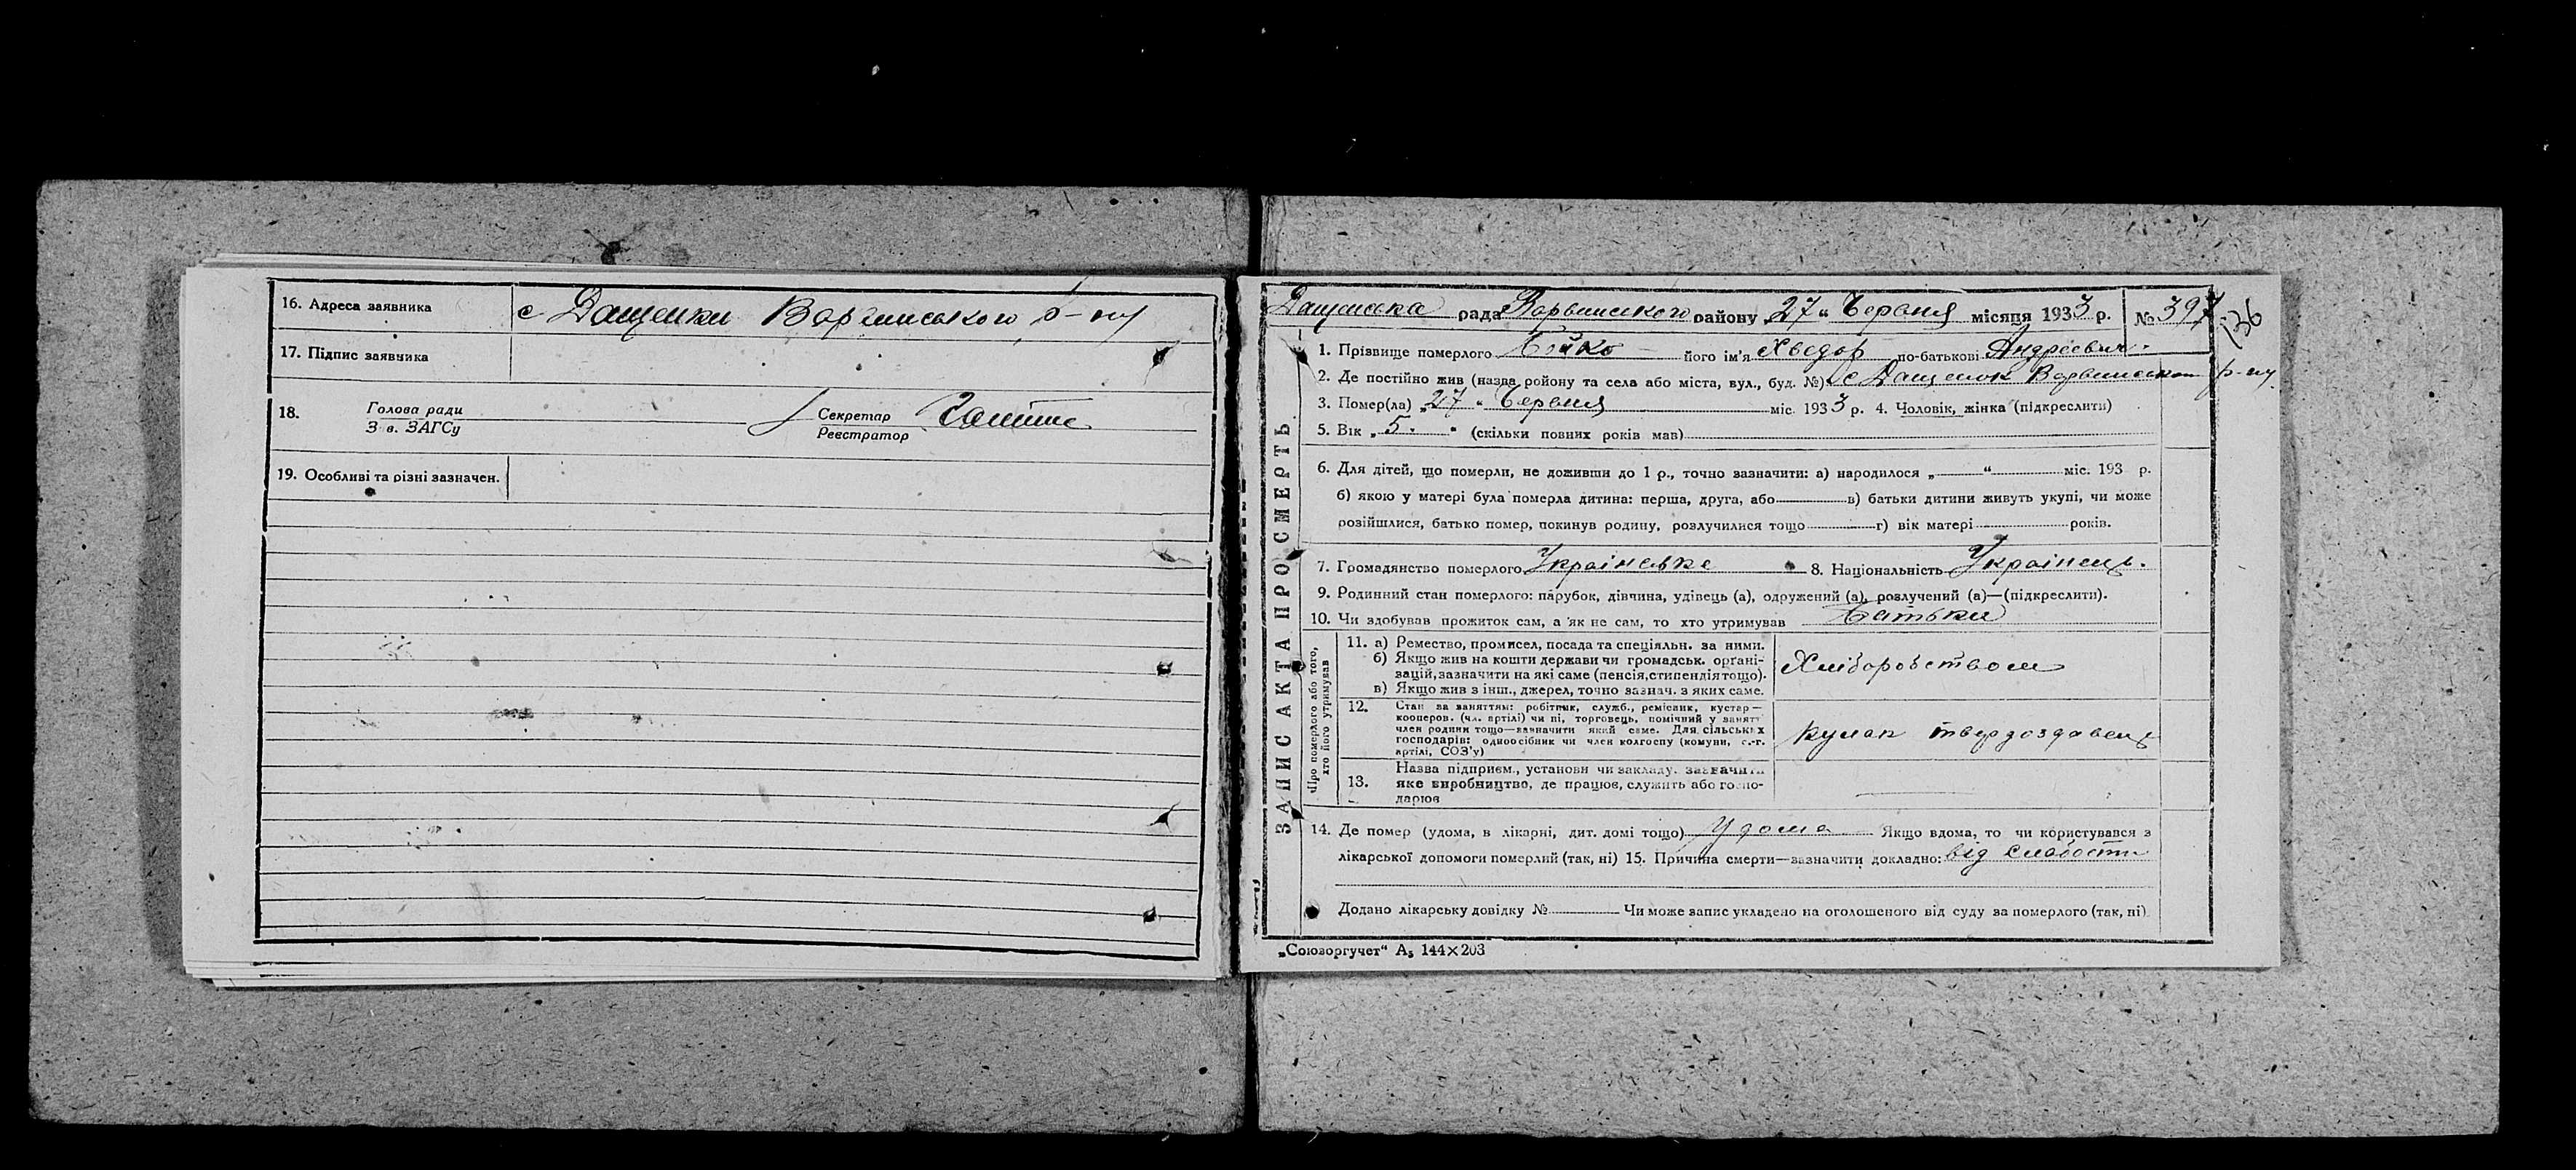 16. Адреса заявника с Дащенки Варвинського р-ну
17. Підпис заявника
18. Голова ради Секретар
Зав. ЗАГСу Реєстратор
19. Особливі та різні зазначен.
Дащенська рада Варвинського району „27“ Червня місяця 1933 р. № 397
136
ЗАПИС АКТА ПРО СМЕРТЬ
1. Прізвище померлого Бойко його ім'я Хведор по-батькові Андреевич.
2. Де постійно жив (назва району та села або міста, вул., буд. №) с Дащенок Варвинського р-ну.
3. Помер(ла) „27“ Червня міс. 1933 р. 4. Чоловік, жінка (підкреслити)
5. Вік „5.“ (скільки повних років мав)
6. Для дітей, що померли, не доживши до 1 р., точно зазначити: а) народилося „ “ міс. 193 р.
б) якою у матері була померла дитина: перша, друга, або в) батьки дитини живуть укупі, чи може
розійшлися, батько помер, покинув родину, розлучилися тощо г) вік матері років.
7. Громадянство померлого Українське 8. Національність Українець.
9. Родинний стан померлого: парубок, дівчина, удівець (а), одружений (а), розлучений (а)—(підкреслити).
10. Чи здобував прожиток сам, а як не сам, то хто утримував Батьки
Про померлого або того,
хто його утримував
11. а) Ремество, промисел, посада та спеціяльн. за ними.
б) Якщо жив на кошти держави чи громадськ. орґані-
зацій, зазначити на які саме (пенсія, стипендія тощо).
в) Якщо жив з інш., джерел, точно зазнач. з яких саме.
Хліборобством
12. Стан за заняттям: робітник, служб., ремісник, кустар—
кооперов. (чл. артілі) чи ні, торговець, помічний у занятт
член родини тощо—зазначити який саме. Для сільських
господарів: одноосібник чи член колгоспу (комуни, с.-г.
артілі, СОЗ'у)
кулак твердоздавець
13. Назва підприєм., установи чи закладу. зазначити
яке виробництво, де працює, служить або госпо-
дарює
14. Де помер (удома, в лікарні, дит. домі тощо) Удома Якщо вдома, то чи користувався з
лікарської допомоги померлий (так, ні) 15. Причина смерти—зазначити докладно: від слабости
Додано лікарську довідку № Чи може запис укладено на оголошеного від суду за померлого (так, ні)
„Союзоргучет“ А5 144×203